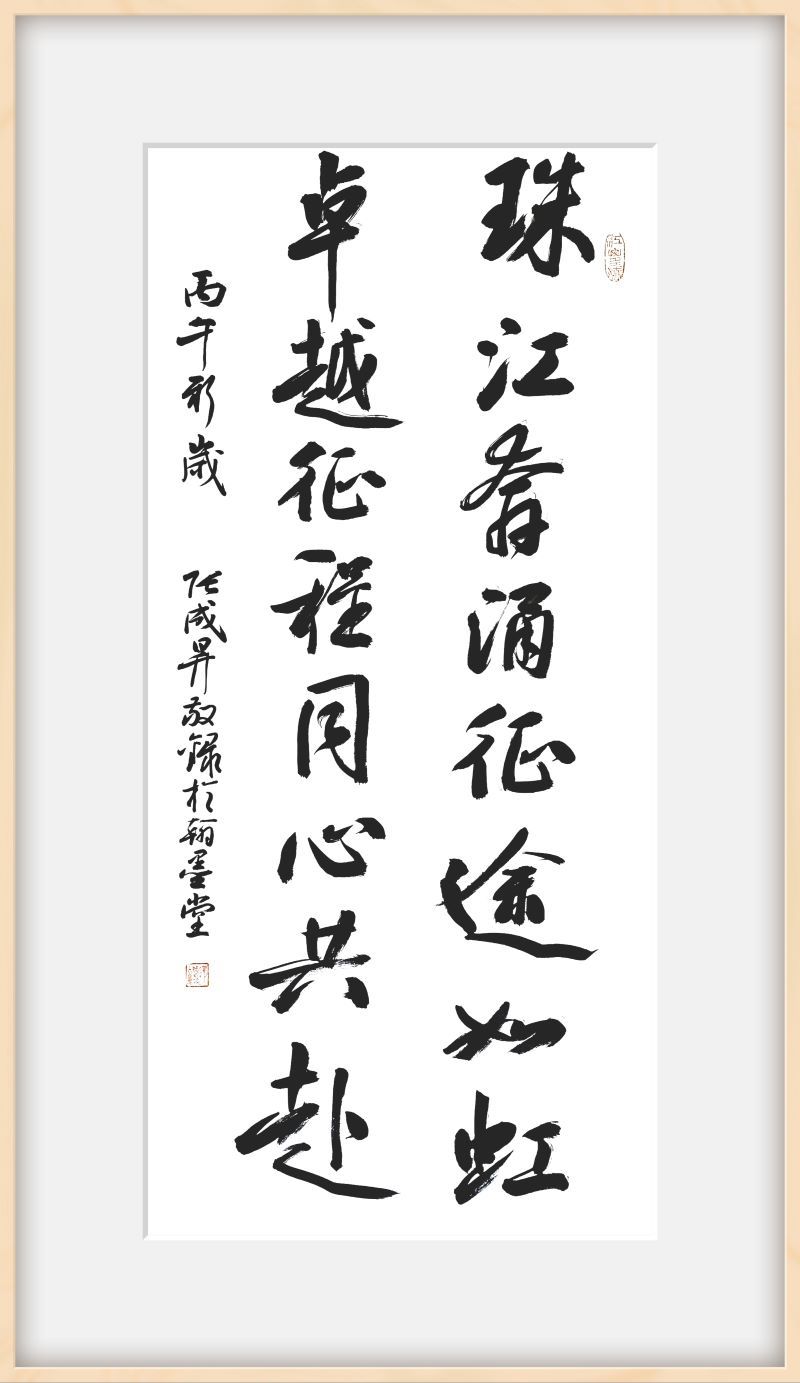 珠江奔涌征途如虹
卓越征程同心共赴
丙午新歲 张成昇敬錄於翰墨堂